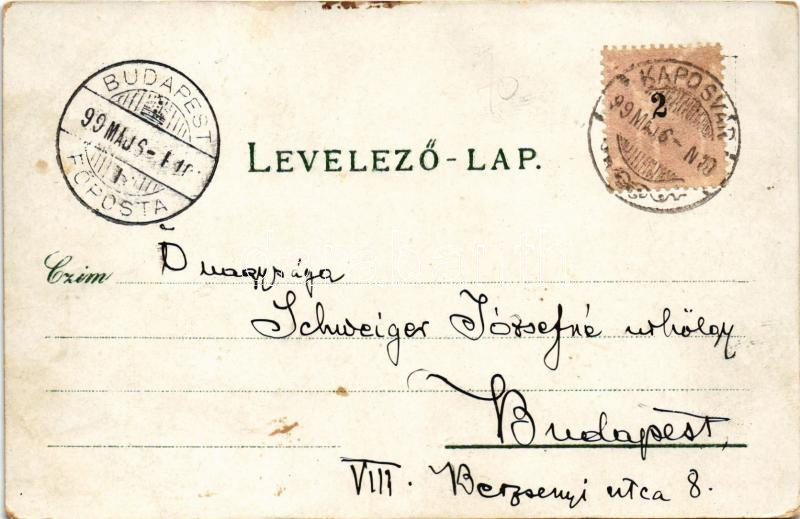 BUDAPEST
99 MÁJ 6
FŐPOSTA
KAPOSVÁR
99 MÁJ 6 - N 10
2
LEVELEZŐ-LAP.
Czím Ő nagysága
Schweiger Józsefné urhölgy
Budapest,
VIII. Berzsenyi utca 8.